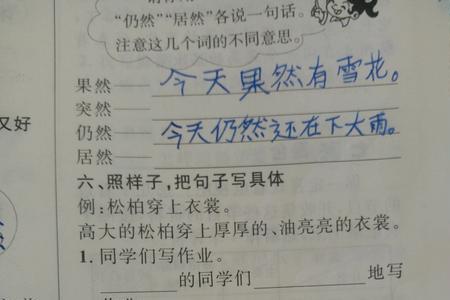 “仍然”“居然”各说一句话。
注意这几个词的不同意思。
果然——今天果然有雪花。
突然——
又好
仍然——今天仍然还在下大雨。
居然——
六、照样子，把句子写具体
例：松柏穿上衣裳。
高大的松柏穿上厚厚的、油亮亮的衣裳。
1. 同学们写作业。
________的同学们________地写